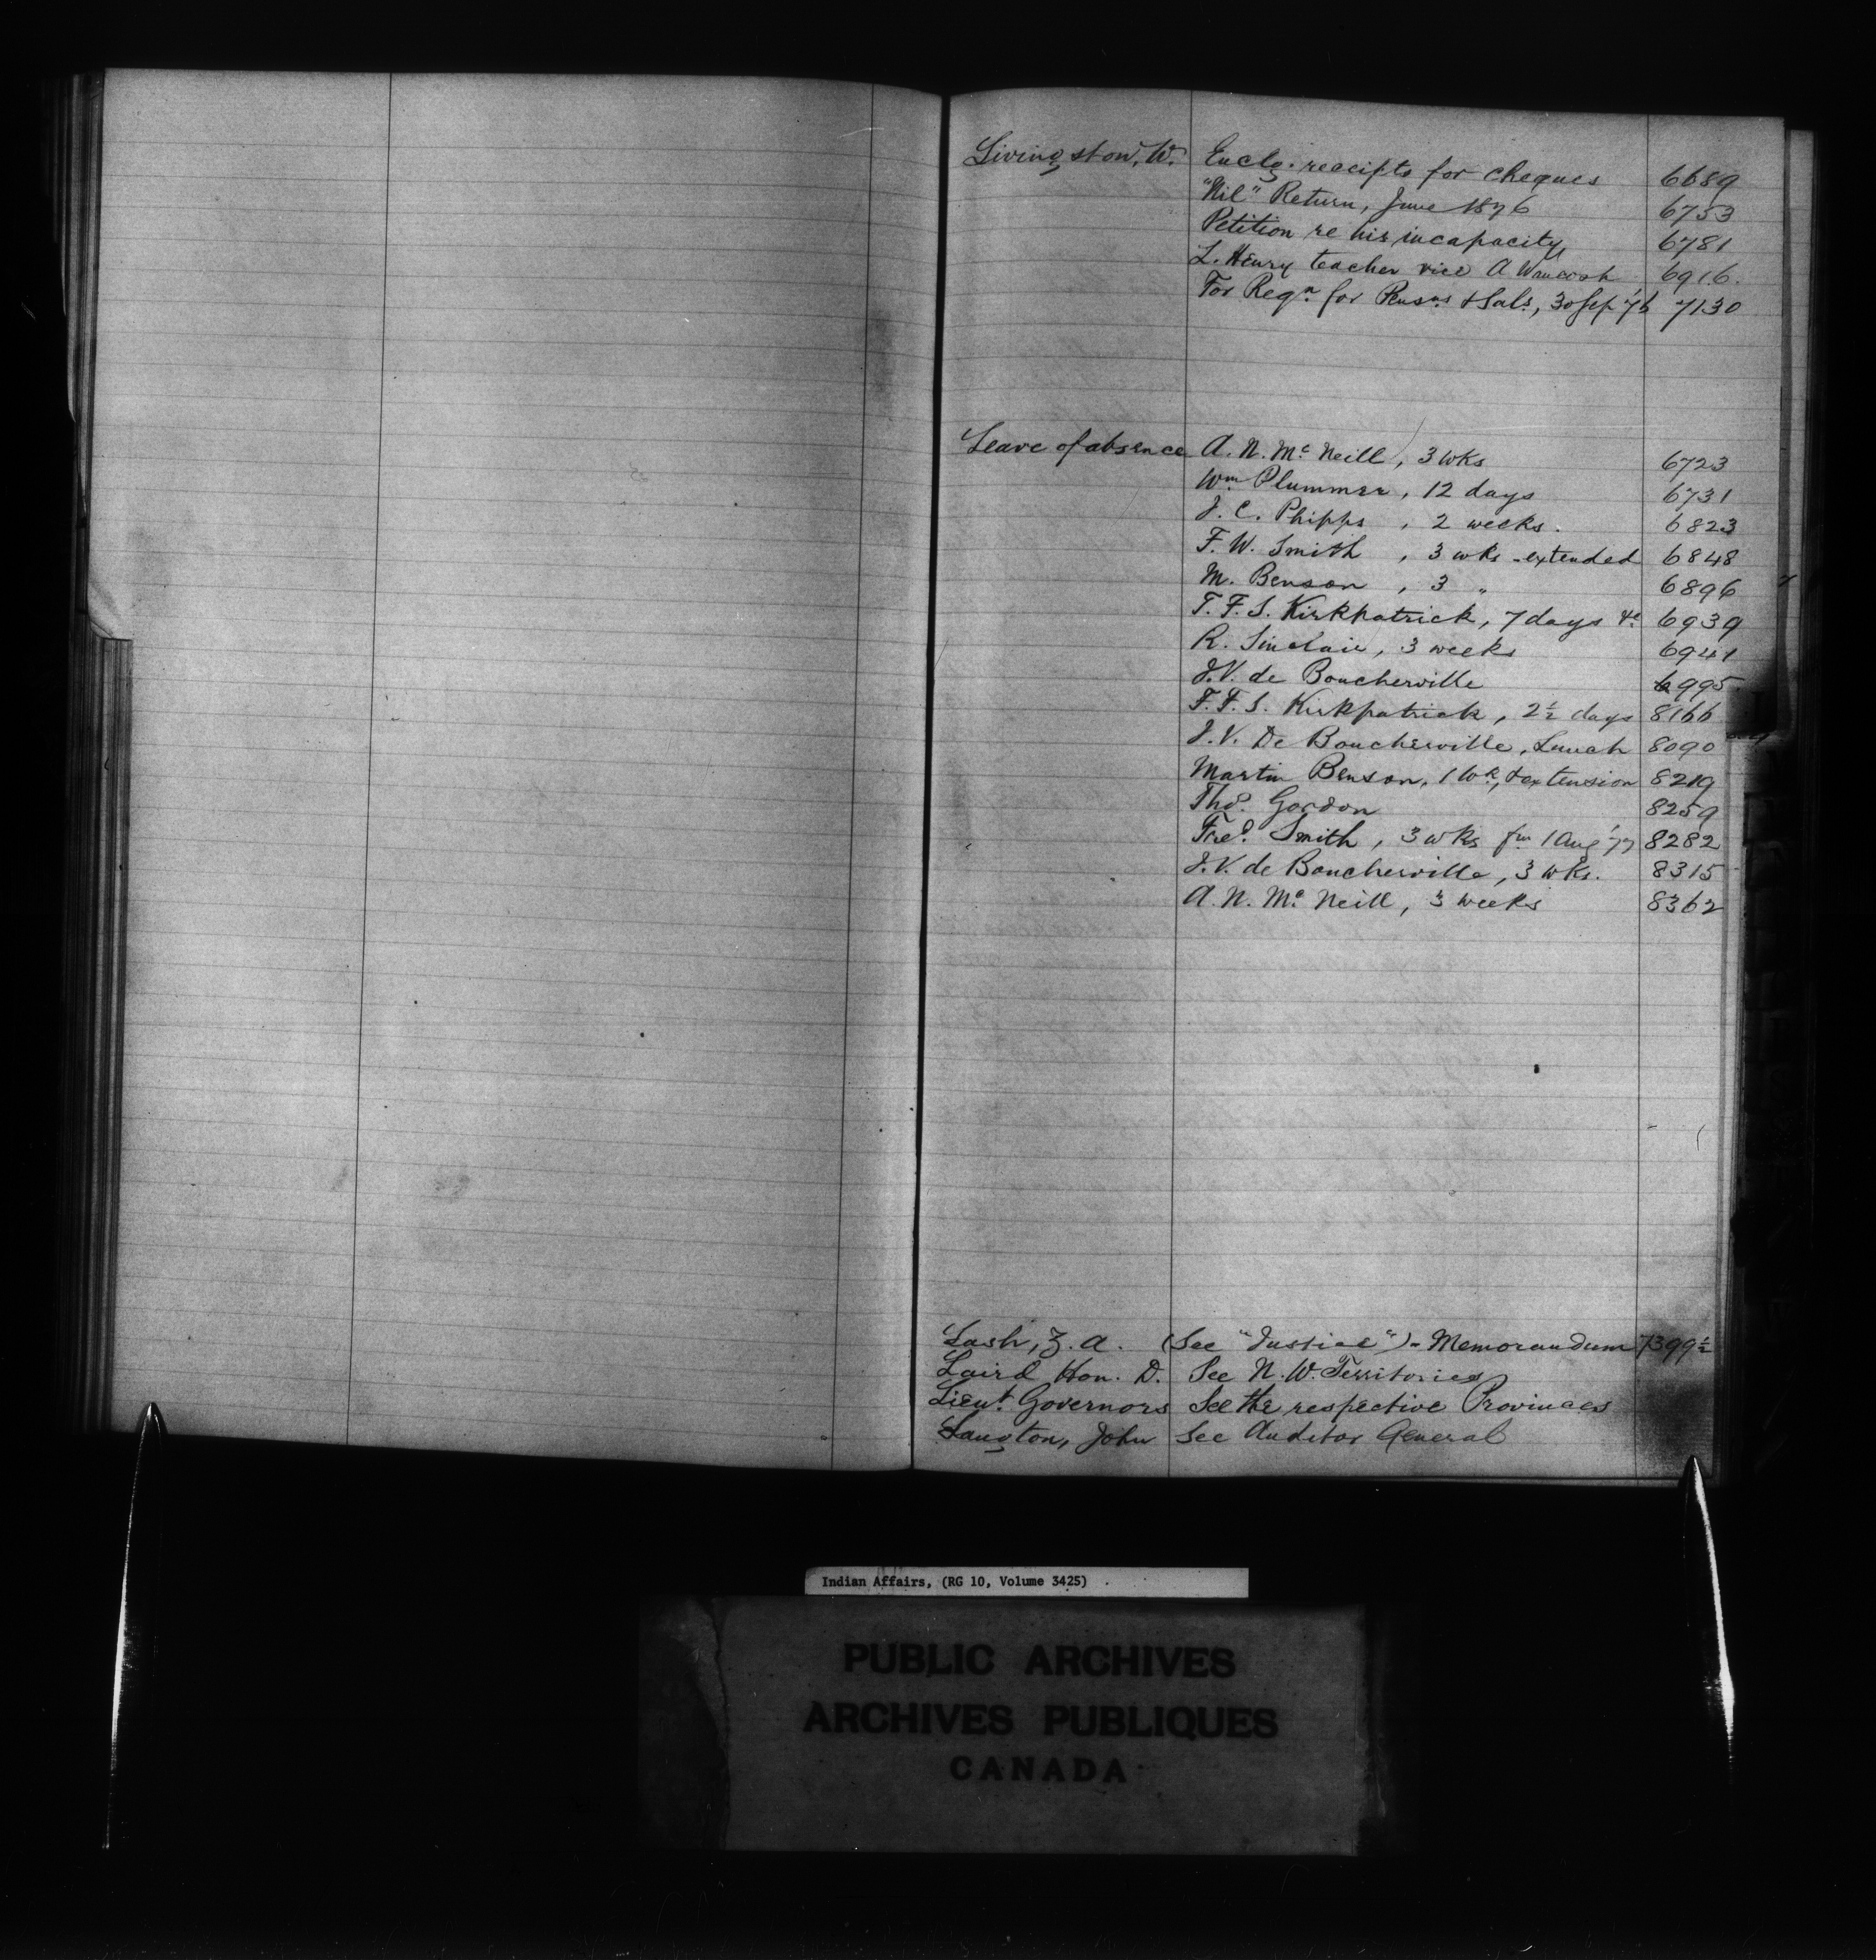 Livingston, W. Enclg. receipts for cheques 6689
"Nil" Return, June 1876 6753
Petition re his incapacity 6781
L. Henry teacher vice A 6916.
For Reqn. for Pensns & Sals., 30 Sep '76 7130
Leave of absence A. N. Mc Neill, 3 wks 6723
Wm Plummer, 12 days 6731
J. C. Phipps, 2 weeks. 6823
F. W. Smith, 3 wks - extended 6848
M. Benson, 3 " 6896
T. F. S. Kirkpatrick, 7 days &c 6939
R. Sinclair, 3 weeks 6941
J. V. de Boucherville 6995
F. F. S. Kirkpatrick, 2½ days 8166
J. V. De Boucherville, Lunch 8090
Martin Benson, 1 wk, & extension 8219
Thos. Gordon 8259
Fred. Smith, 3 wks fm 1 Aug '77 8282
J. V. de Boucherville, 3 wks. 8315
A. N. Mc Neill, 3 weeks 8362
Lash, Z. A. (See "Justice") - Memorandum 7399½
Laird Hon. D. See N. W. Territories
Lieut. Governors See the respective Provinces
Langton, John See Auditor General
Indian Affairs, (RG 10, Volume 3425)
PUBLIC ARCHIVES
ARCHIVES PUBLIQUES
CANADA